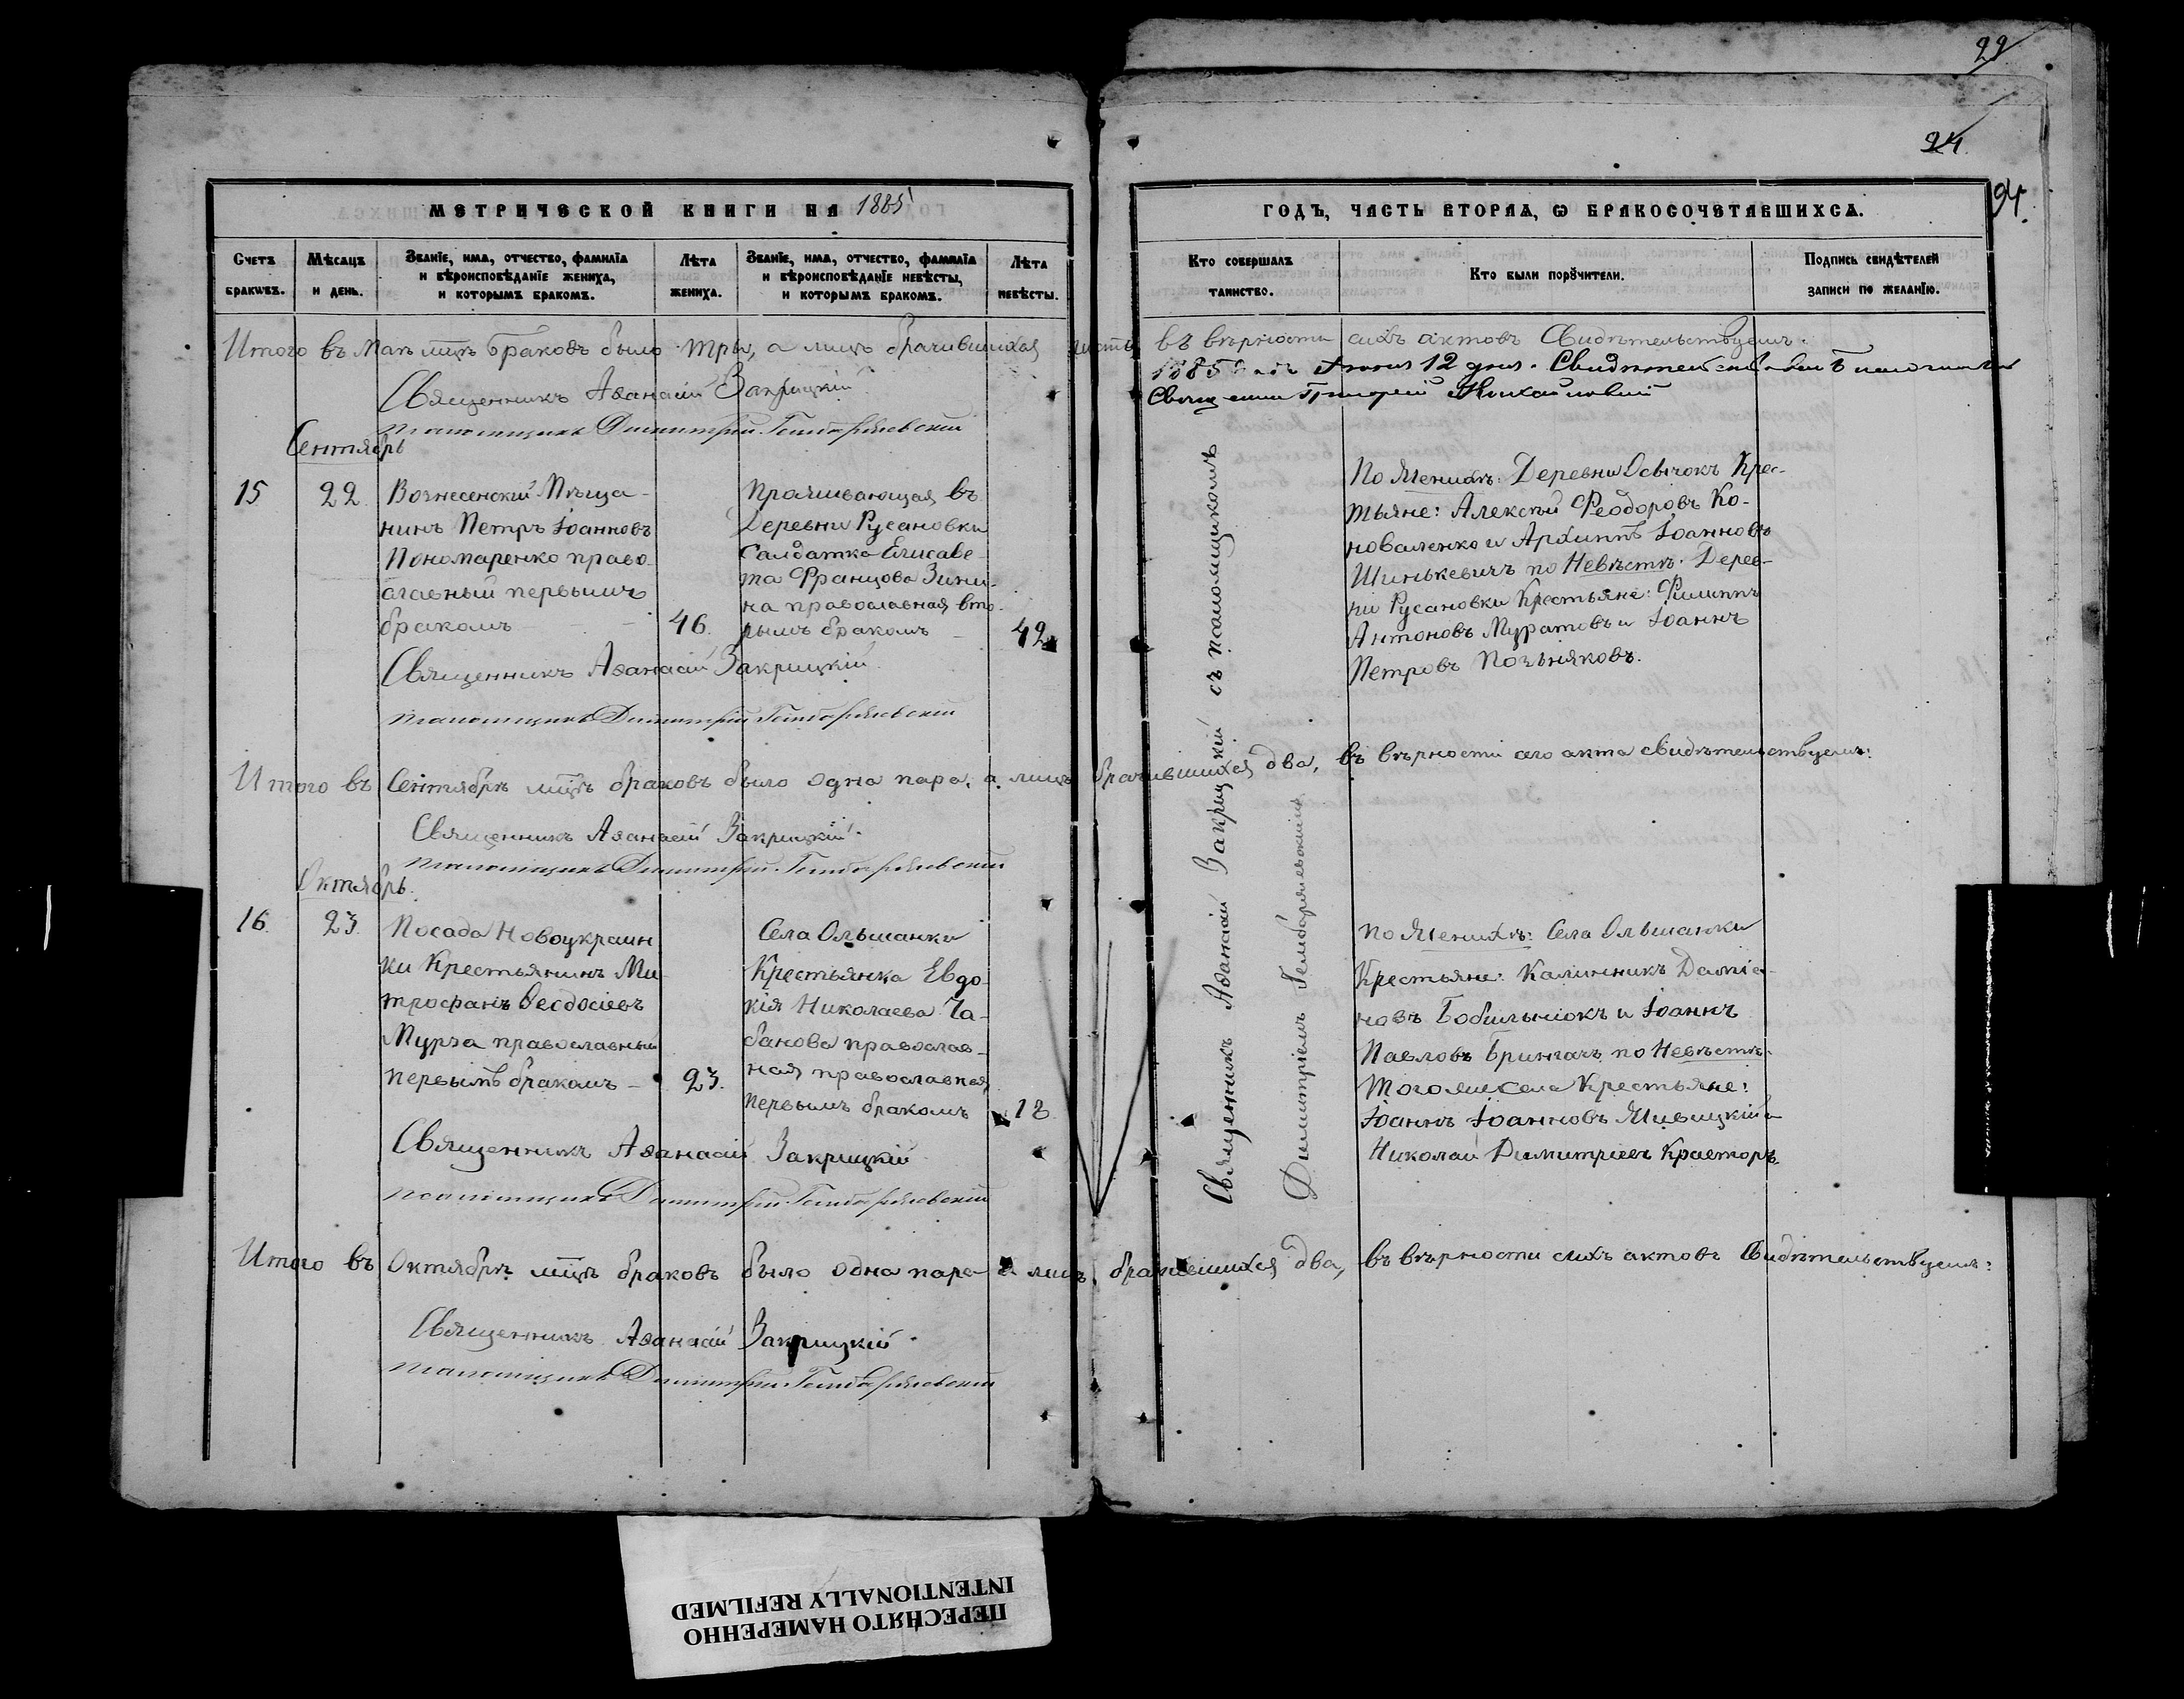 29
24
94.
МЕТРИЧЕСКОЙ КНИГИ НА 1885
ГОДЪ, ЧАСТЬ ВТОРАѦ, Ѡ БРАКОСОЧЕТАВШИХСѦ.
Счетъ браковъ.
Мѣсѧцъ и день.
Званїе, имѧ, отчество, фамилїа
и вѣроисповѣданїе жениха,
и которымъ бракомъ.
Лѣта
жениха.
Званїе, имѧ, отчество, фамилїа
и вѣроисповѣданїе невѣсты,
и которымъ бракомъ.
Лѣта
невѣсты.
Кто совершалъ
таинство.
Кто были порꙋчители.
Подпись свидѣтелей
записи по желанїю.
Итого въ Маѣ мцѣ браковъ было три, а лицъ брачившихся шесть, въ вѣрности сихъ актовъ Свидѣтельствуемъ.
Священникъ Аѳанасій Закрицкій
Псаломщикъ Димитрій
1885 12 дня.
Григорій Михайловскій
Сентябрь
15
22
Вознесенскій Мѣща-
нинъ Петръ Іоанновъ
Пономаренко право-
славный первымъ
бракомъ
46.
Проживающая въ
Деревни Русановки
Салдатка Елисаве-
та Францова Зини-
на православная вто-
рымъ бракомъ
42
Священникъ Аѳанасій Закрицкій
Псаломщикъ Димитрій
По Женихѣ: Деревни Осычокъ Кре-
стьяне: Алексѣй Феодоровъ Ко-
новаленко и Архиппъ Іоанновъ
Шинькевичъ по Невѣстѣ: Дерев-
ни Русановки Крестьяне: Филиппъ
Антоновъ Муратовъ и Іоаннъ
Петровъ Позьняковъ.
Итого въ Сентябрѣ мцѣ браковъ было одна пара, а лицъ брачившихся два, въ вѣрности сего акта свидѣтельствуемъ:
Священникъ Аѳанасій Закрицкій.
Псаломщикъ Димитрій
Октябрь.
16.
23.
Посада Новоукраин
ки Крестьянинъ Ми-
трофанъ Ѳеодосіевъ
Мурза православный
первымъ бракомъ
23.
Села Ольшанки
Крестьянка Евдо-
кія Николаева Ча-
банова православ-
ная православная
первымъ бракомъ
18
Священникъ Аѳанасій Закрицкій
Псаломщикъ Димитрій
Священникъ Аѳанасій Закрицкій съ псаломщикомъ
Димитріемъ
По Женихѣ: Села Ольшанки
Крестьяне: Калинникъ Даміа-
новъ Бобильнюкъ и Іоаннъ
Павловъ Бринзачъ по Невѣстѣ:
тогоже села Крестьяне:
Іоаннъ Іоанновъ Живицкій и
Николай Димитріевъ Красторъ.
Итого въ Октябрѣ мцѣ браковъ было одна пара а лицъ брачившихся два, въ вѣрности сихъ актовъ Свидѣтельствуемъ:
Священникъ Аѳанасій Закрицкій.
Псаломщикъ Димитрій
ПЕРЕСНЯТО НАМЕРЕННО
INTENTIONALLY REFILMED